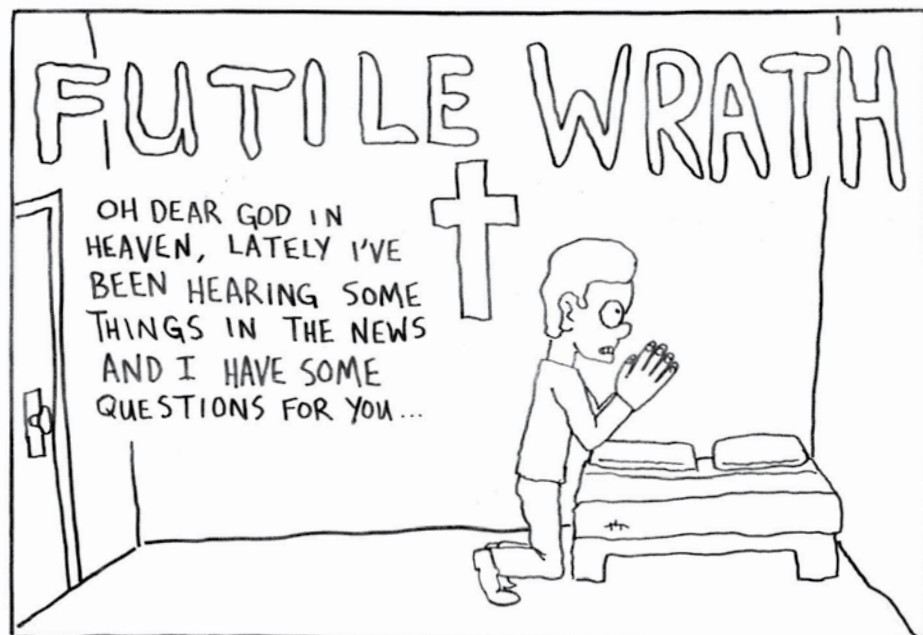 FUTILE WRATH
OH DEAR GOD IN
HEAVEN, LATELY I'VE
BEEN HEARING SOME
THINGS IN THE NEWS
AND I HAVE SOME
QUESTIONS FOR YOU...